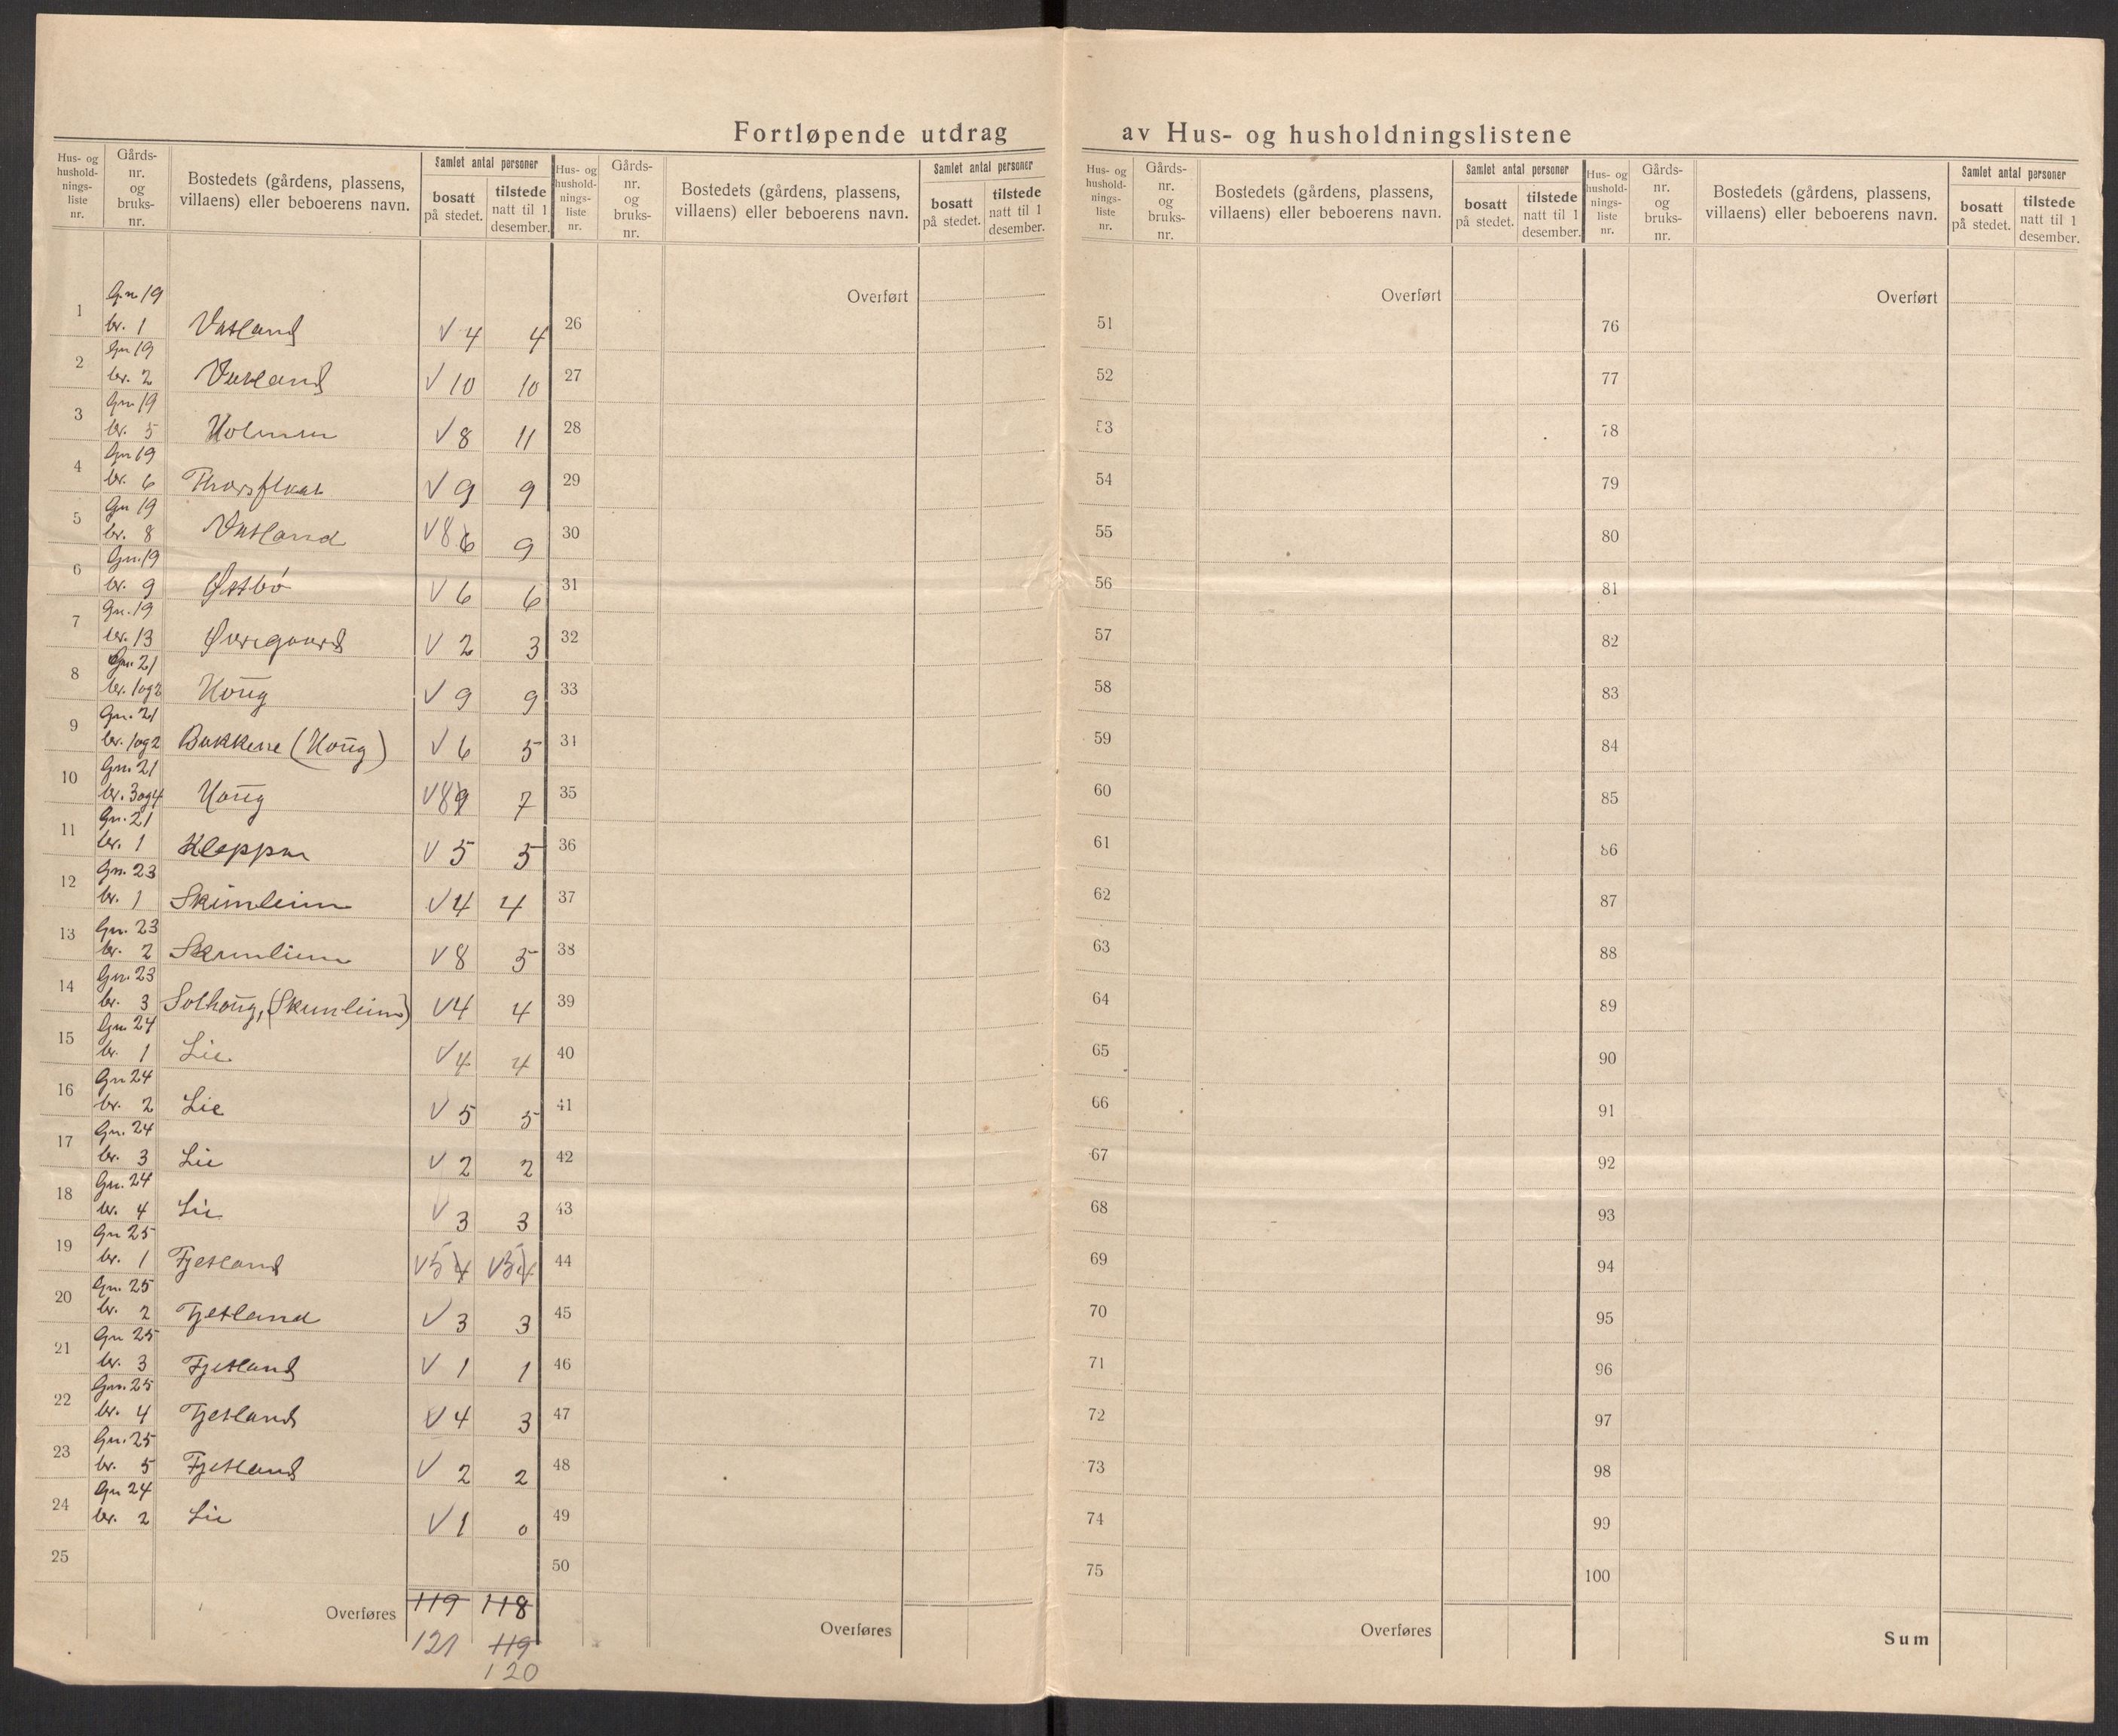 Fortløpende utdrag av Hus- og husholdningslistene
Hus- og husholdningsliste nr. | Gårds-nr. og bruks-nr. | Bostedets (gårdens, plassens, villaens) eller beboerens navn. | Samlet antal personer | bosatt på stedet. | tilstede natt til 1 desember.
1 Gn 19 br. 1 Vatland V 4 4
2 Gn 19 br. 2 Vatland V 10 10
3 Gn 19 br. 5 Holmen V 8 11
4 Gn 19 br. 6 V 9 9
5 Gn 19 br. 8 Vatland V 8 6 9
6 Gn. 19 br. 9 Østbø V 6 6
7 Gn. 19 br. 13 Øvregaard V 2 3
8 Gn. 21 br. 1 og 2 Houg V 9 9
9 Gn. 21 br. 1 og 2 Bakkene (Houg) V 6 5
10 Gn. 21 br. 3 og 4 Houg V 8 9 7
11 Gn. 21 br. 1 Kleppen V 5 5
12 Gn. 23 br. 1 Skumleim V 4 4
13 Gn. 23 br. 2 Skumleim V 8 5
14 Gn. 23 br. 3 Solhoug, (Skumleim) V 4 4
15 Gn. 24 br. 1 Lie V 4 4
16 Gn 24 br. 2 Lie V 5 5
17 Gn. 24 br. 3 Lie V 2 2
18 Gn. 24 br. 4 Lie V 3 3
19 Gn 25 br. 1 Fjetland V 5 4 V 5 4
20 Gn. 25 br. 2 Fjetland V 3 3
21 Gn 25 br. 3 Fjetland V 1 1
22 Gn. 25 br. 4 Fjetland V 4 3
23 Gn. 25 br. 5 Fjetland V 2 2
24 Gn 24 br. 2 Lie V 1 0
25
Overføres 119 118
121 119
120
Hus- og husholdningsliste nr. | Gårds-nr. og bruks-nr. | Bostedets (gårdens, plassens, villaens) eller beboerens navn. | Samlet antal personer | bosatt på stedet. | tilstede natt til 1 desember.
Overført
26
27
28
29
30
31
32
33
34
35
36
37
38
39
40
41
42
43
44
45
46
47
48
49
50
Overføres
Hus- og husholdningsliste nr. | Gårds-nr. og bruks-nr. | Bostedets (gårdens, plassens, villaens) eller beboerens navn. | Samlet antal personer | bosatt på stedet. | tilstede natt til 1 desember.
Overført
51
52
53
54
55
56
57
58
59
60
61
62
63
64
65
66
67
68
69
70
71
72
73
74
75
Overføres
Hus- og husholdningsliste nr. | Gårds-nr. og bruks-nr. | Bostedets (gårdens, plassens, villaens) eller beboerens navn. | Samlet antal personer | bosatt på stedet. | tilstede natt til 1 desember.
Overført
76
77
78
79
80
81
82
83
84
85
86
87
88
89
90
91
92
93
94
95
96
97
98
99
100
Sum